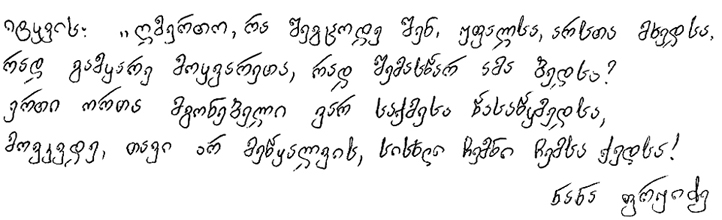 იტყვის: „ღმერთო, რა შეგცოდე შენ, უფალსა, არსთა მხედსა,
რად გამყარე მოყვარეთა, რად შემასწარ ამა ბედსა?
ერთი ორთა მგონებელი ვარ საქმესა წასაწყმედსა,
მოვკვდე, თავი არ მეწყალვის, სისხლი ჩემნი ჩემსა ქედსა!
ნანა ფრუიძე